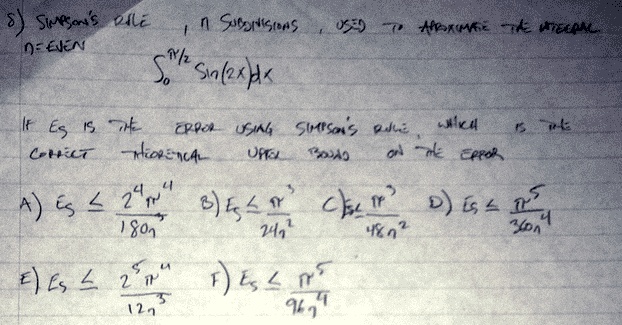 8) SIMPSON'S RULE , n SUBDIVISIONS , USED TO APROXIMATE THE INTEGRAL
n=EVEN
∫₀^(π/2) Sin(2x)dx
IF Es IS THE ERROR USING SIMPSON'S RULE, WHICH IS THE
CORRECT THEORETICAL UPPER BOUND ON THE ERROR
A) Es ≤ 2⁴π⁴/180n⁵ B) Es ≤ π³/24n² C) Es ≤ π³/48n² D) Es ≤ π⁵/360n⁴
E) Es ≤ 2⁵π⁴/12n³ F) Es ≤ π⁵/96n⁴